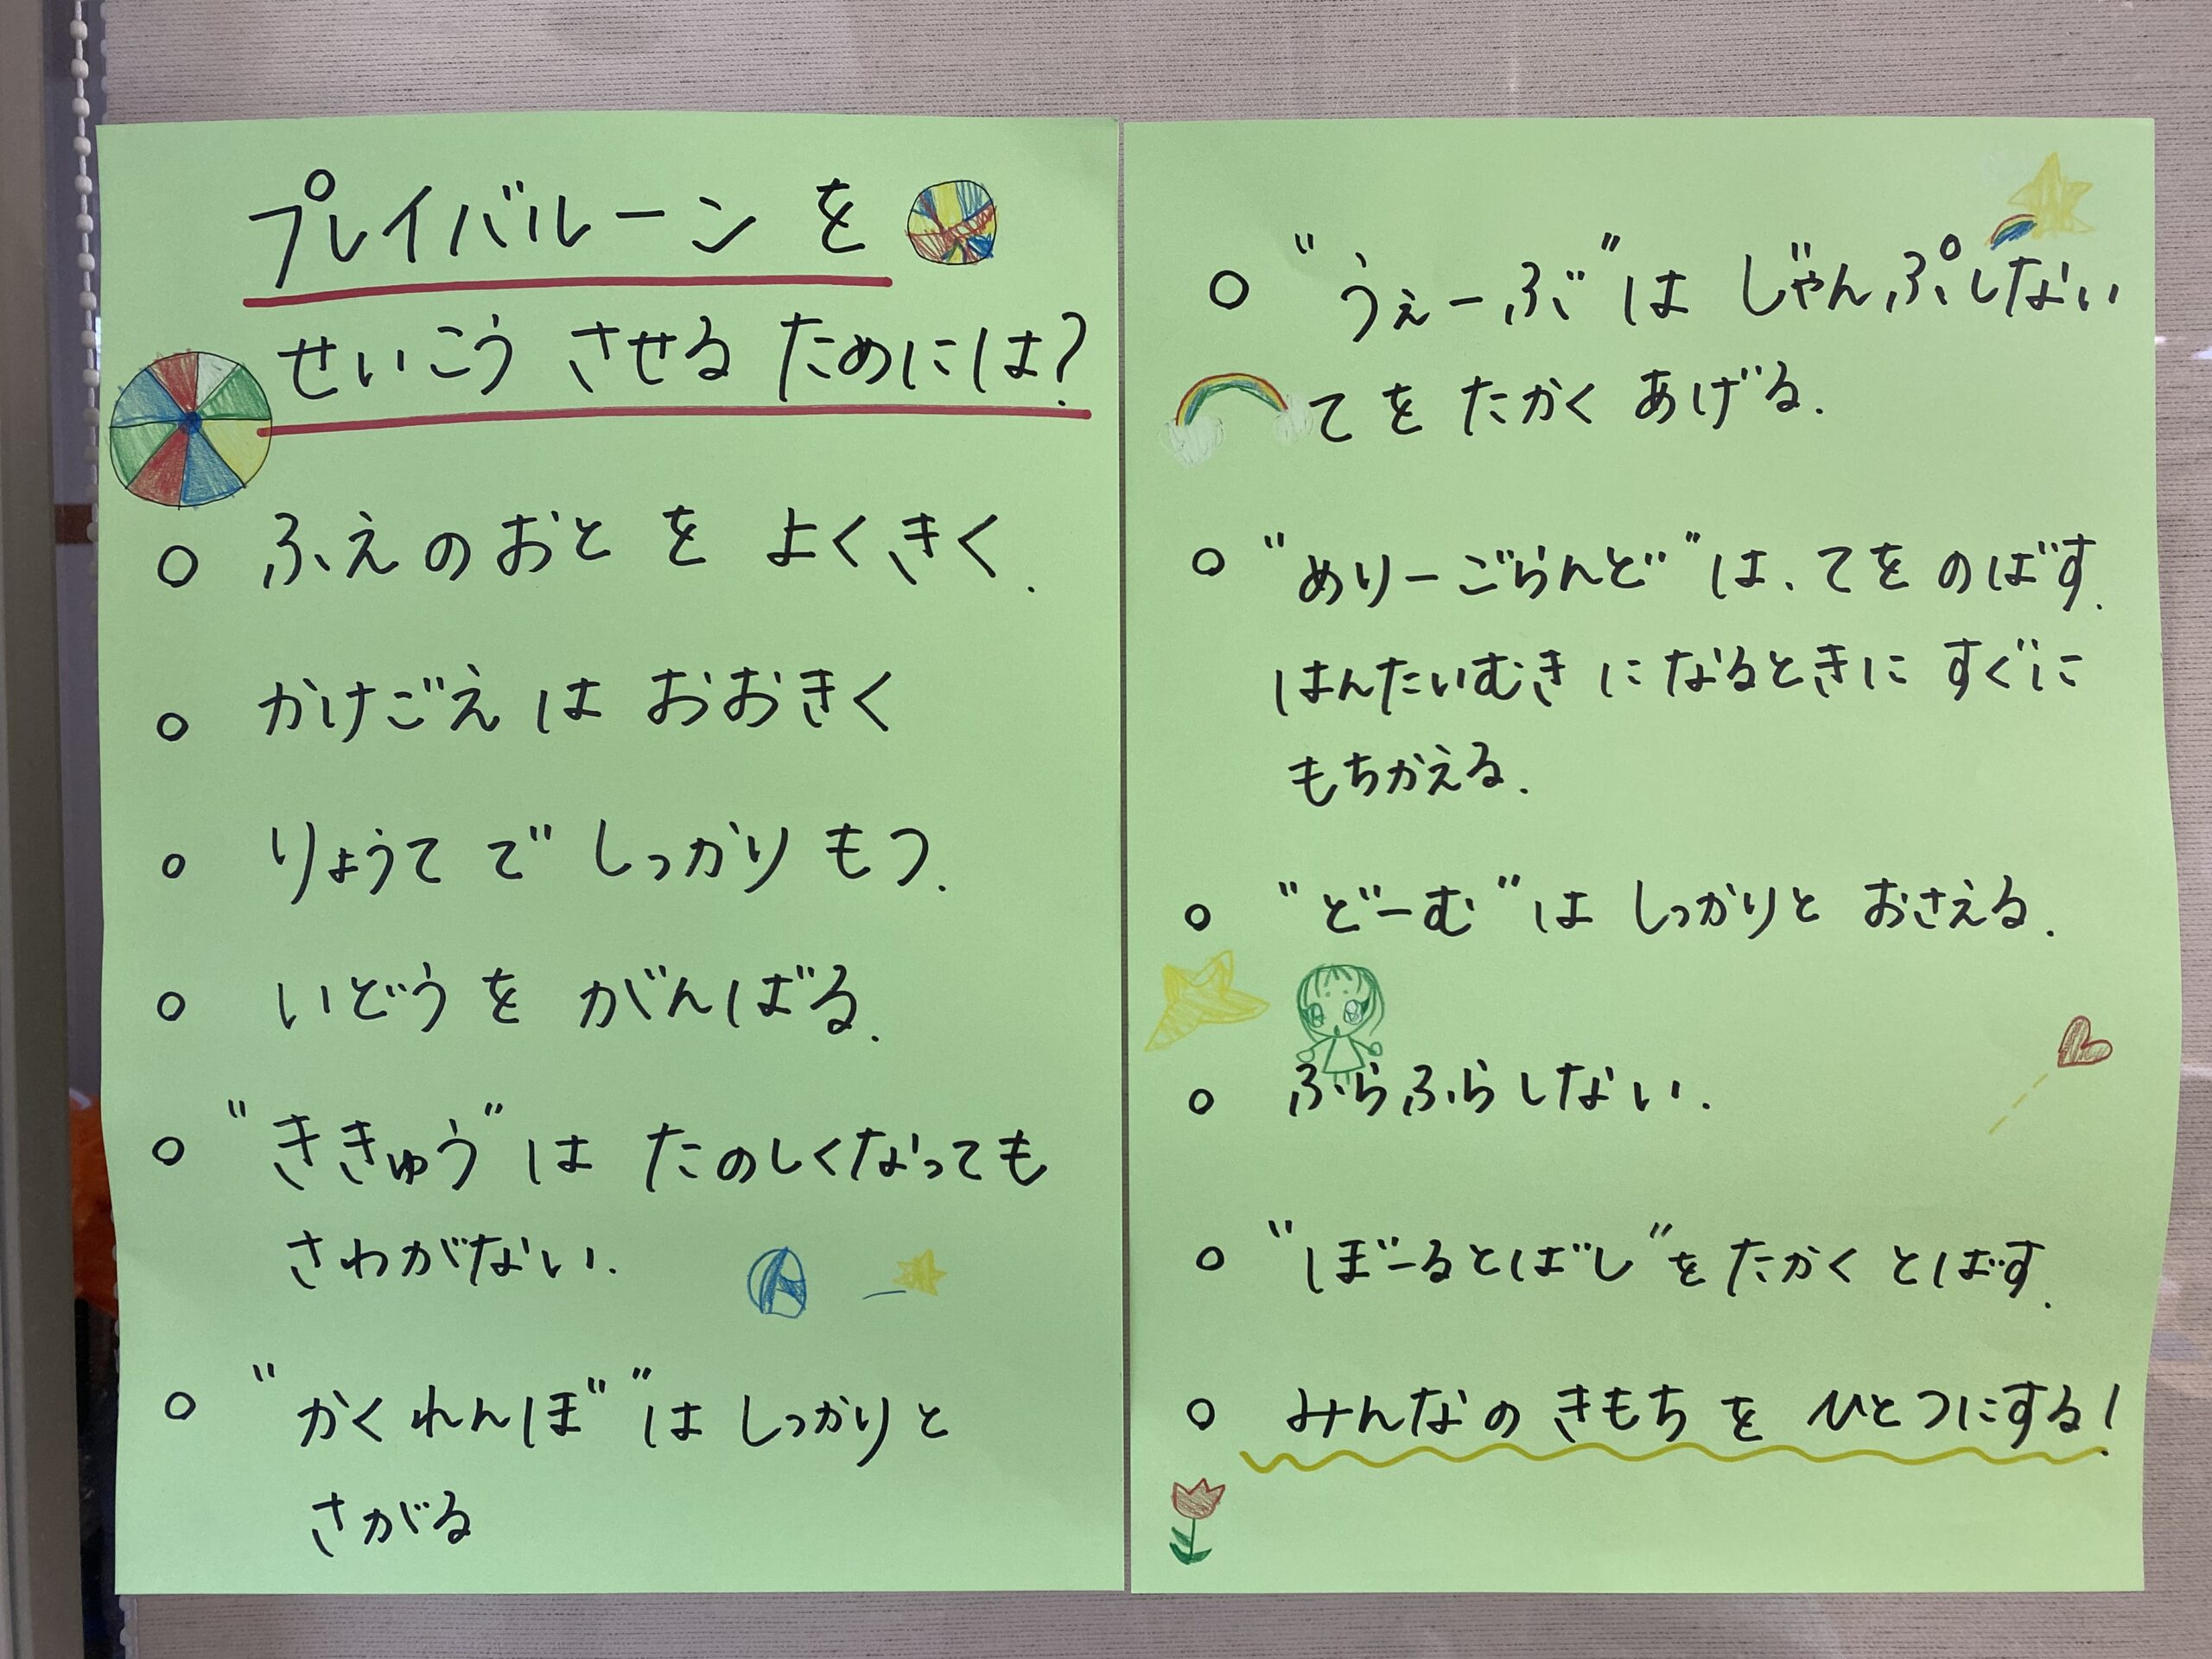 プレイバルーン を
せいこう させる ためには?
○ ふえのおと を よくきく.
○ かけごえ は おおきく
○ りょうて で しっかり もつ.
○ いどう を がんばる.
○ "ききゅう"は たのしくなっても
さわがない.
○ "かくれんぼ"は しっかりと
さがる
○ "うぇーぶ"は じゃんぷしない
て を たかく あげる.
○ "めりーごらんど"は、てを のばす.
はんたいむき に なるときに すぐに
もちかえる.
○ "どーむ"は しっかりと おさえる.
○ ふらふらしない.
○ "ぼーるとばし"を たかく とばす.
○ みんなの きもち を ひとつにする!